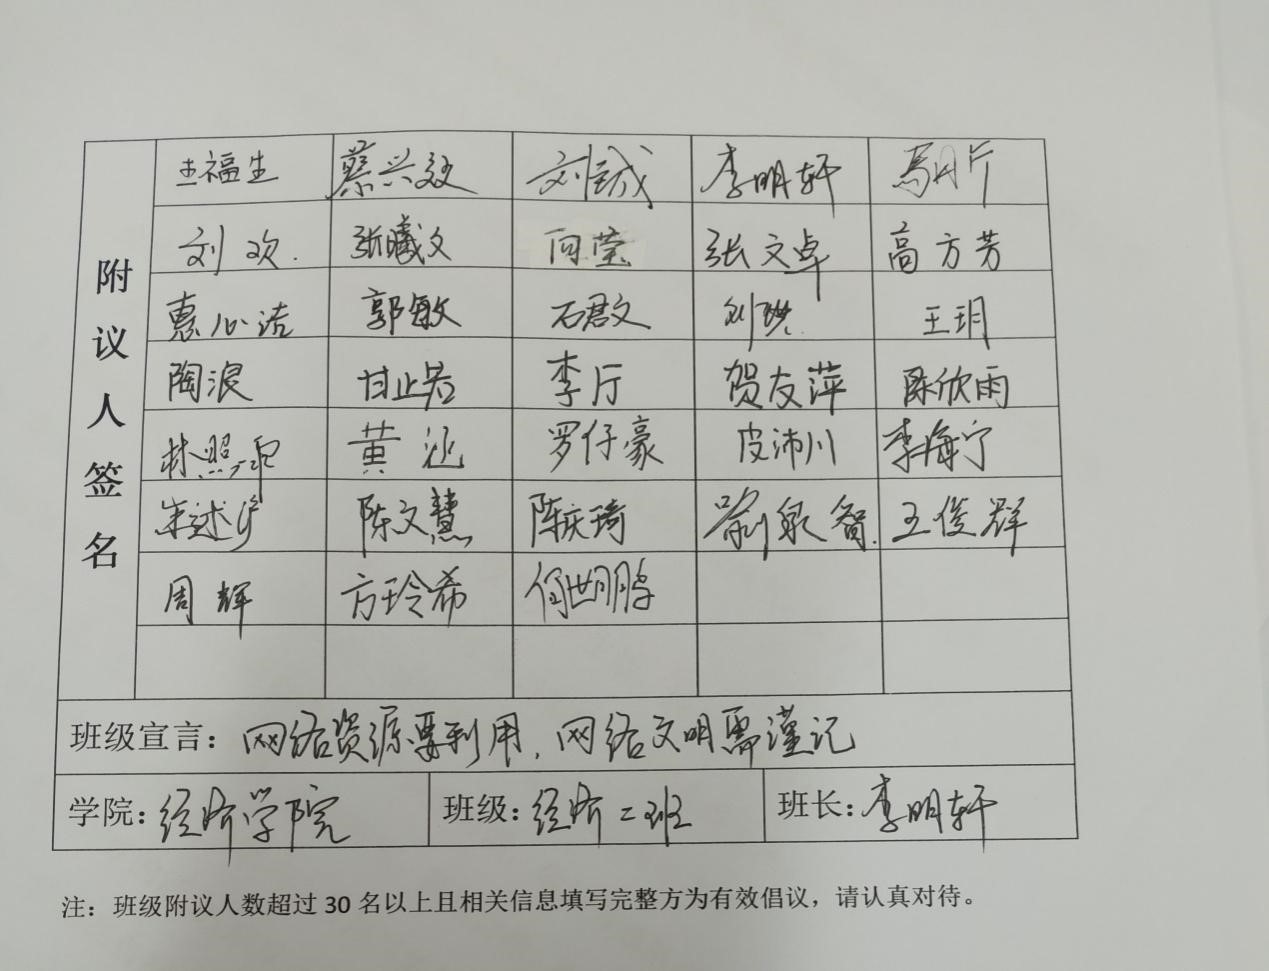 附议人签名
王福生 蔡兴 刘诚 李明轩 馬月斤
刘欢. 张曦文 向莹 张文卓 高方芳
惠心洁 郭敏 石君文 刘琪 王玥
陶浪 甘止若 李斤 贺友萍 陈欣雨
林照 黄 罗仔豪 皮沛川 李海宁
朱述 陈文慧 陈庆琦 泉智. 王俊群
周辉 方玲希 何世鹏
班级宣言：网络资源要利用，网络文明需谨记
学院：经济学院 班级：经济二班 班长：李明轩
注：班级附议人数超过 30 名以上且相关信息填写完整方为有效倡议，请认真对待。